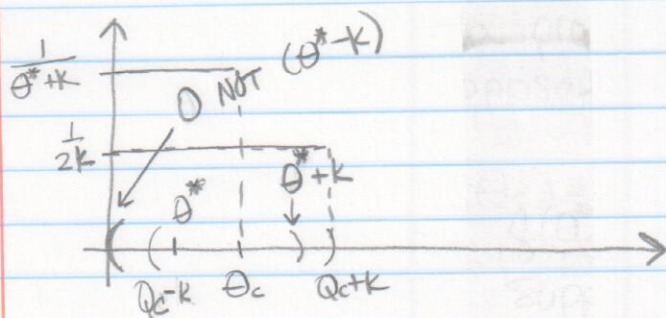 1/(θ*+k) NOT (θ*-k)
0
1/2k
θ* θ*+k
θc-k θc θc+k